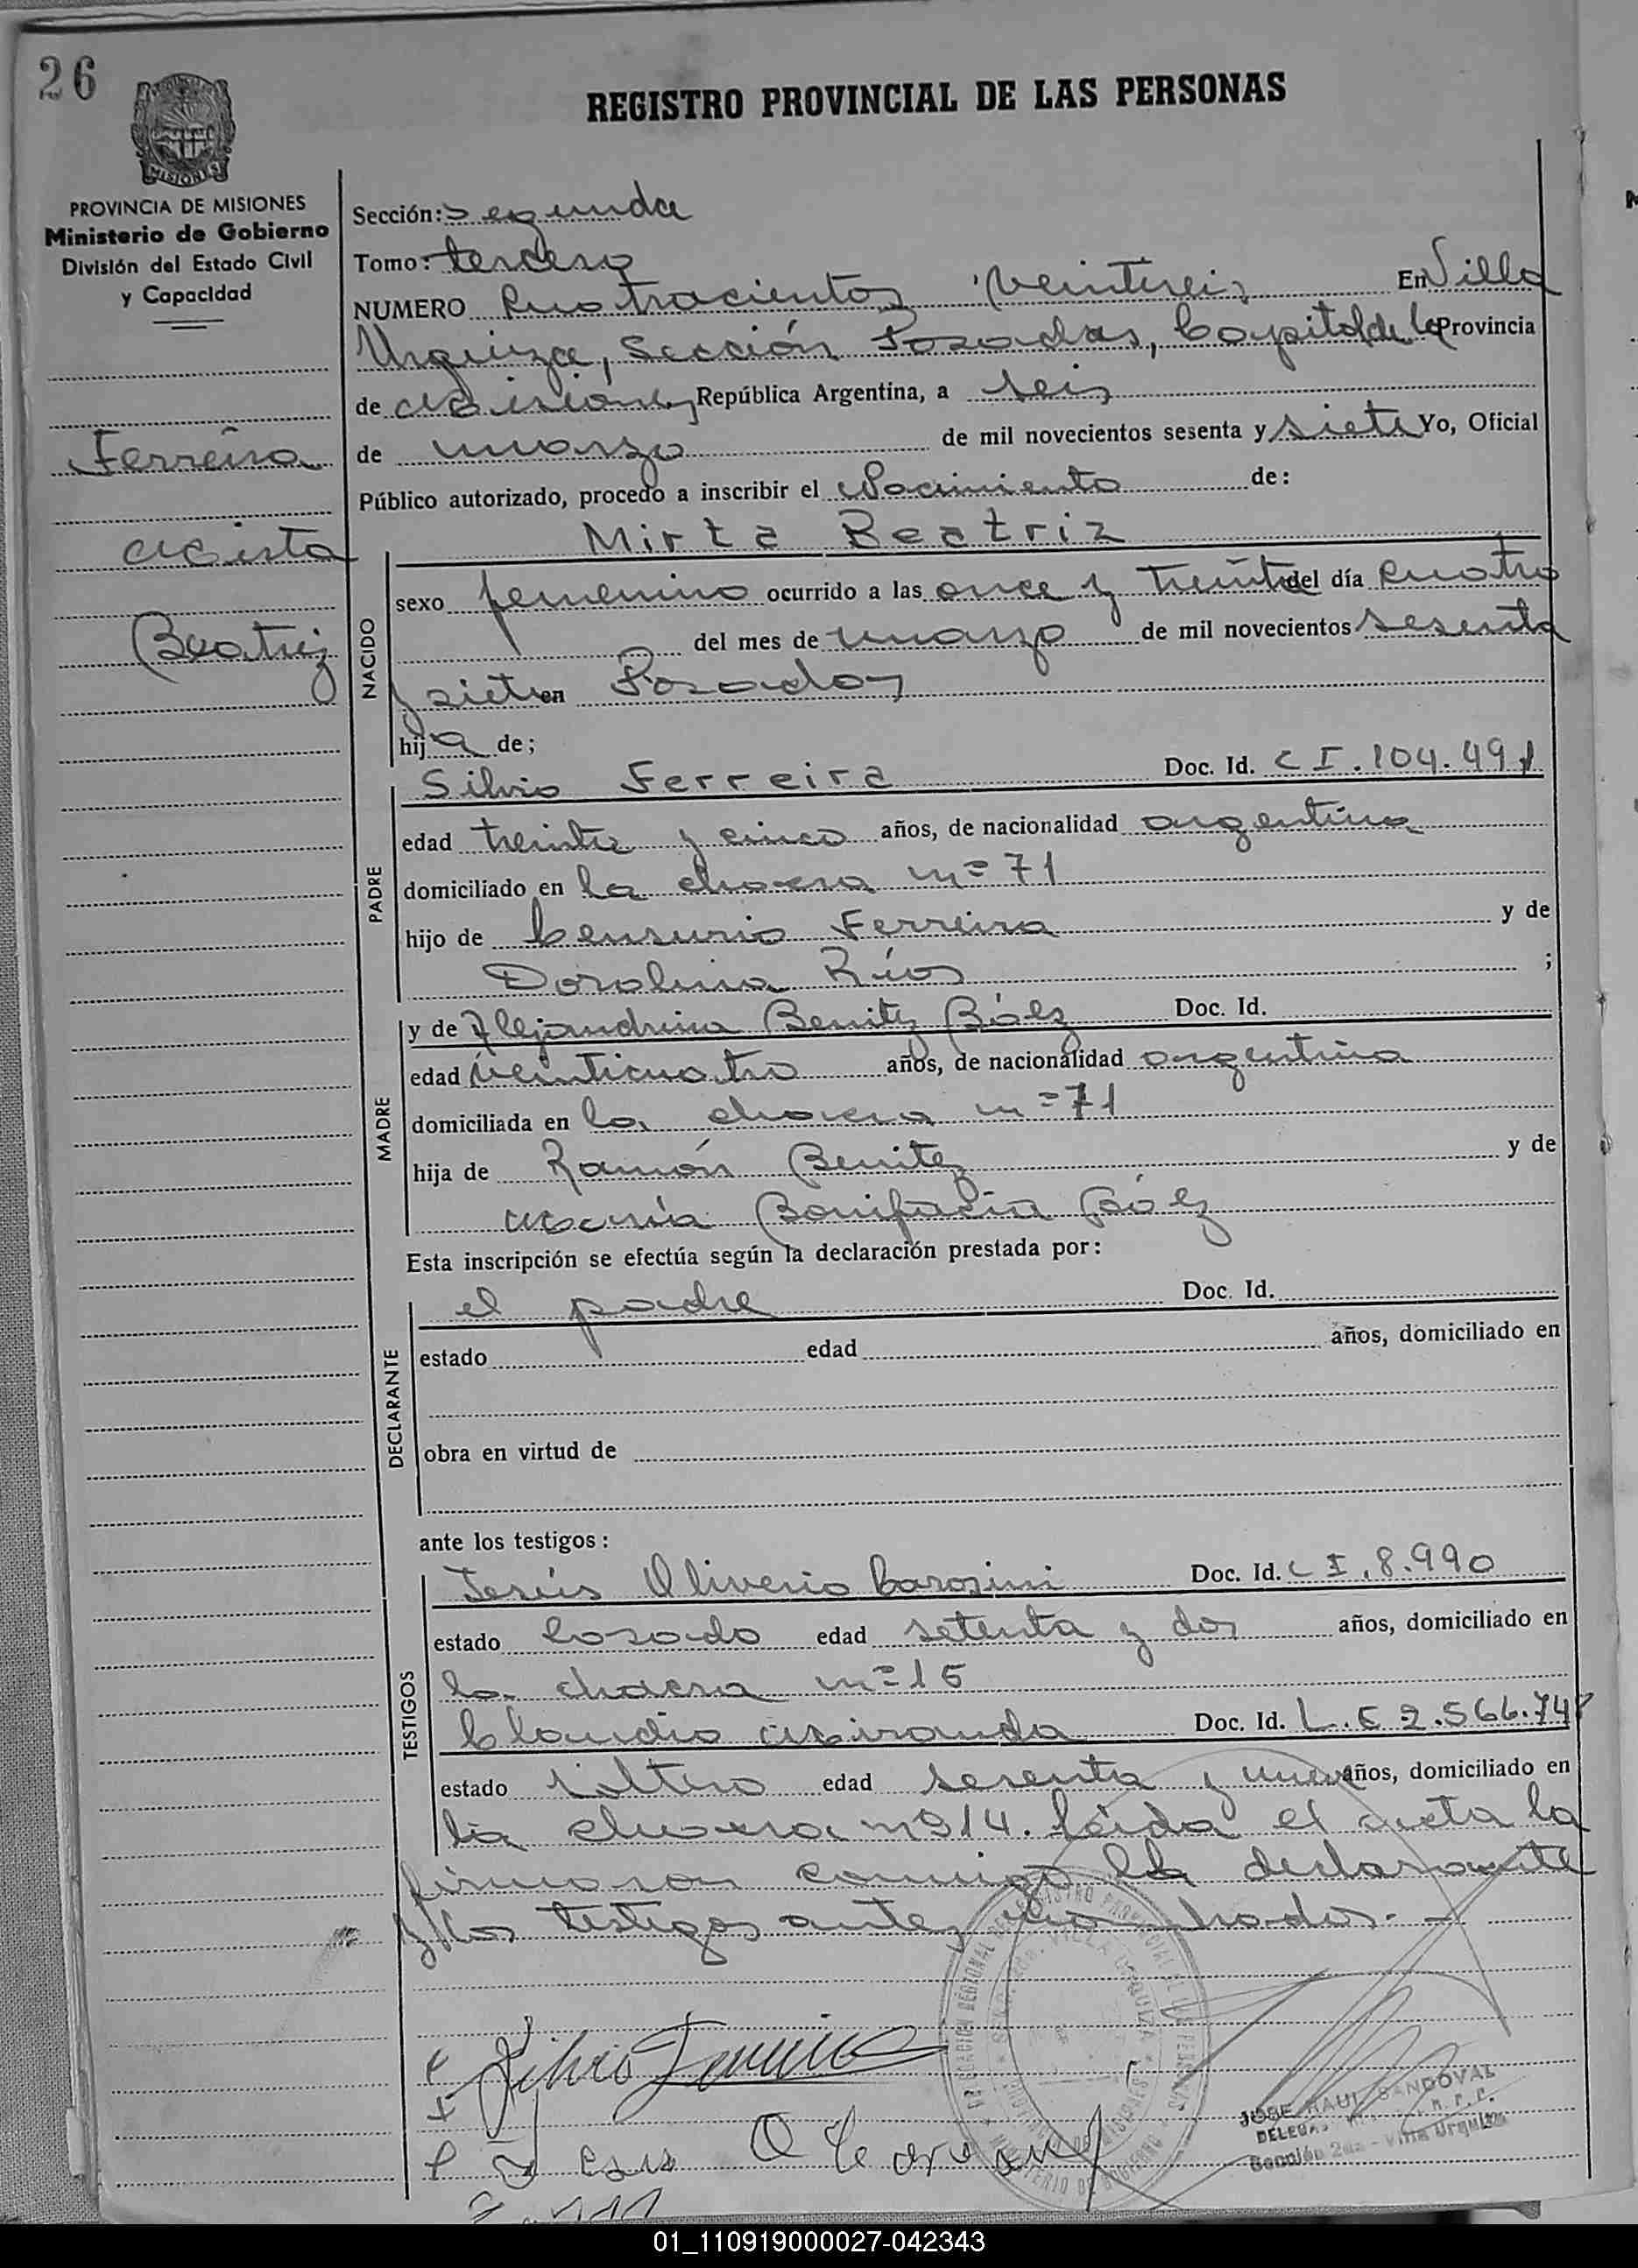 26
REGISTRO PROVINCIAL DE LAS PERSONAS
MISIONES
PROVINCIA DE MISIONES
Ministerio de Gobierno
División del Estado Civil
y Capacidad
Ferreira
Mirta
Beatriz
Sección: Segunda
Tomo: tercero
NUMERO Cuatrocientos Veintiseis En Villa
Urquiza, Sección Posadas, Capital de la Provincia
de Misiones República Argentina, a seis
de marzo de mil novecientos sesenta y siete Yo, Oficial
Público autorizado, procedo a inscribir el Nacimiento de:
NACIDO
Mirta Beatriz
sexo femenino ocurrido a las once y treinta del día cuatro
del mes de marzo de mil novecientos sesenta
y siete en Posadas
hija de;
PADRE
Silvio Ferreira Doc. Id. C I. 104.491
edad treinta y cinco años, de nacionalidad argentina
domiciliado en la chacra nº 71
hijo de Ferreira y de
Dorolina Ríos ;
MADRE
y de Alejandrina Benitez Báez Doc. Id.
edad veinticuatro años, de nacionalidad argentina
domiciliada en la chacra nº 71
hija de Ramón Benitez y de
María Bonifacia Báez
Esta inscripción se efectúa según la declaración prestada por:
DECLARANTE
el padre Doc. Id.
estado edad años, domiciliado en
obra en virtud de
ante los testigos:
TESTIGOS
Jesús Oliverio Doc. Id. C I. 8.990
estado casado edad setenta y dos años, domiciliado en
la chacra nº 15
Claudio Miranda Doc. Id. L. E 2.566.748
estado soltero edad sesenta y nueve años, domiciliado en
la chacra nº 14. Leída el acta la
firmaron conmigo el declarante
y los testigos antes nombrados.-
Silvio Ferreira
JOSE RAUL SANDOVAL
Sección 2da - Villa Urquiza
01_110919000027-042343